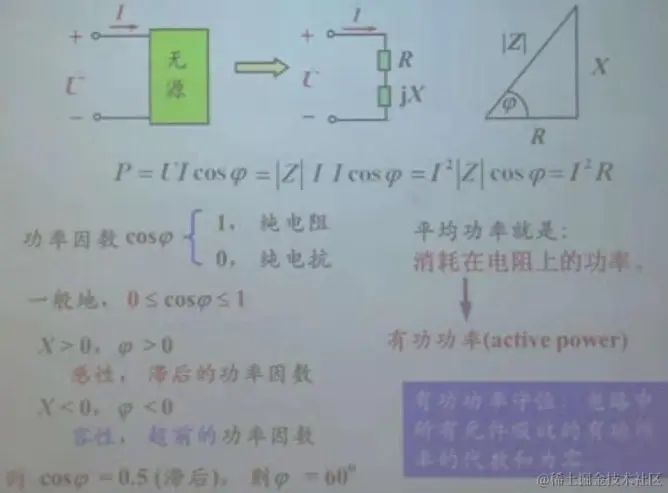 I
I
+
+
无
源
U
U
R
jX
−
−
|Z|
X
φ
R
P = UI cosφ = |Z| I I cosφ = I²|Z| cosφ = I²R
功率因数 cosφ { 1， 纯电阻
0， 纯电抗
平均功率就是：
消耗在电阻上的功率。
一般地，0≤cosφ≤1
有功功率(active power)
X>0，φ>0
感性，滞后的功率因数
X<0，φ<0
容性，超前的功率因数
有功功率守恒：电路中
所有元件吸收的有功功
率的代数和为零
例 cosφ=0.5 (滞后)，则φ =60⁰
@稀土掘金技术社区